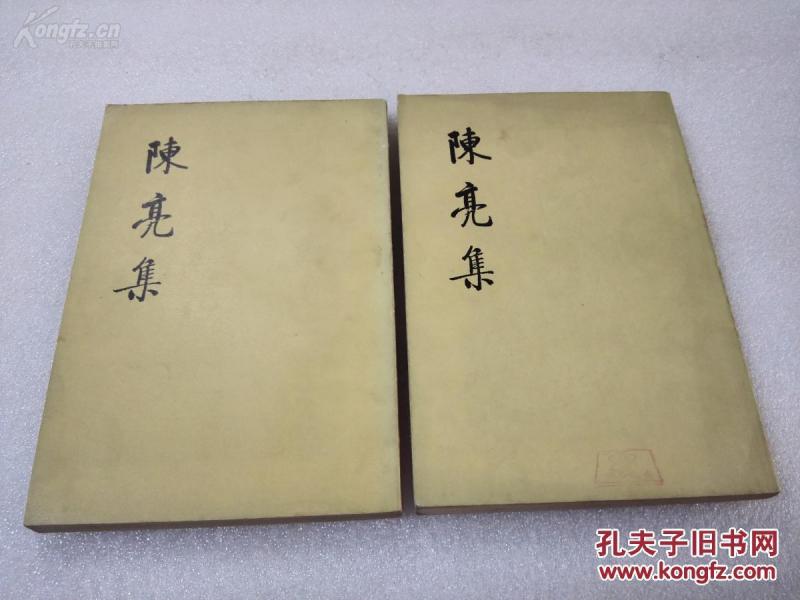 Kongfz.cn
孔夫子旧书网
陳亮集
陳亮集
孔夫子旧书网
www.kongfz.com